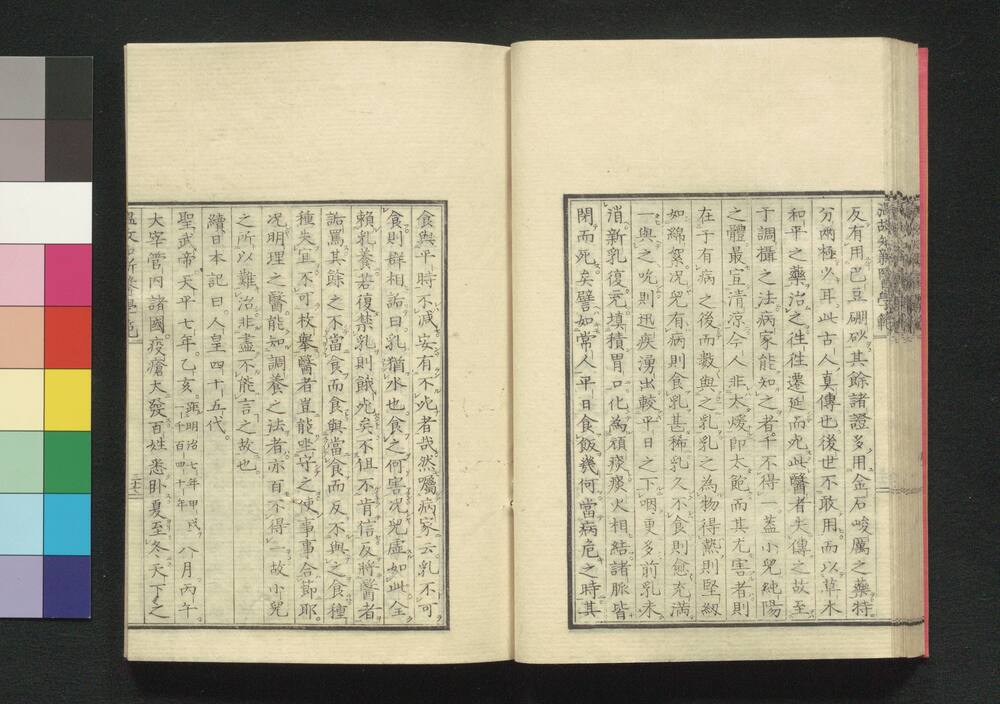 温故知新醫學範
反有用巴豆硼砂其餘諸證多用金石峻厲之藥特
分兩極少耳此古人真傳也後世不敢用而以草木
和平之藥治之往往遷延而死此醫者失傳之故至
于調攝之法病家能知之者千不得一蓋小兒純陽
之體最宜清涼今人非太煖即太飽而其尤害者則
在于有病之後而數與之乳乳之為物得熱則堅紉
如綿絮況兒有病則食乳甚稀乳久不食則愈充滿
一與之吮則迅疾湧出較平日之下咽更多前乳未
消新乳復充填積胃口化為頑痰痰火相結諸脈皆
閉而死矣譬如常人平日食飯幾何當病危之時其
食與平時不減安有不死者哉然囑病家云乳不可
食則群相詬曰乳猶水也食之何害況兒虛如此全
賴乳養若復禁乳則餓死矣不但不肯信反將醫者
詬罵其餘之不當食而食與當食而反不與之食種
種失宜不可枚舉醫者豈能坐守之使事事合節耶
況明理之醫能知調養之法者亦百不得一故小兒
之所以難治非盡不能言之故也
續日本記曰人皇四十五代
聖武帝天平七年乙亥距明治七年甲戌一千百四十年八月丙午
大宰管内諸國疫瘡大發百姓悉卧夏至冬天下之